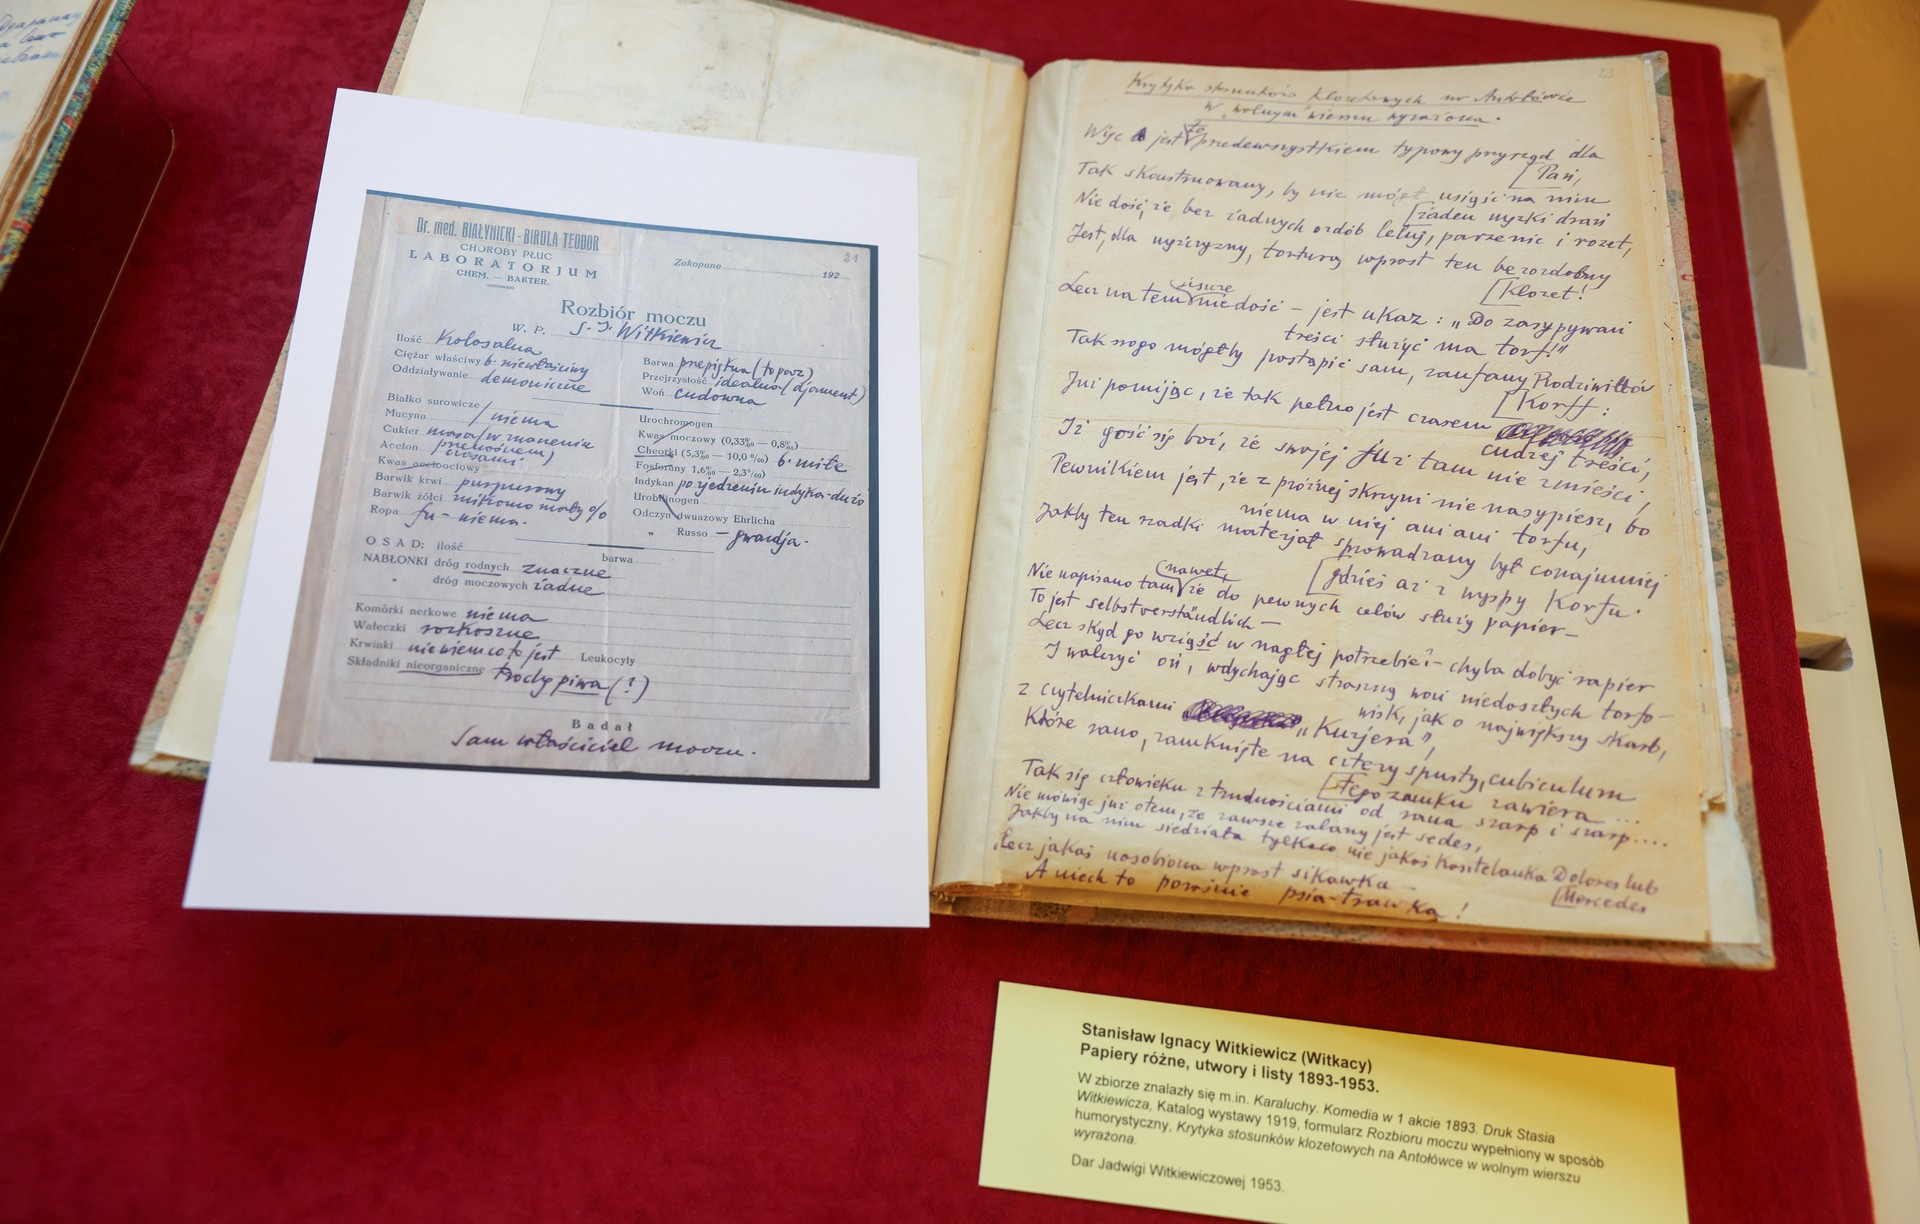 Dr. med. BIAŁYNICKI - BIRULA TEODOR
CHOROBY PŁUC
LABORATORJUM
CHEM. — BAKTER.
21
Zakopane 192
Rozbiór moczu
W. P. S. I. Witkiewicz
Ilość Kolosalna
Ciężar właściwy b. niewłaściwy
Oddziaływanie demoniczne
Barwa przepiękna (topaz)
Przejrzystość idealna (djament)
Woń cudowna
Białko surowicze
Mucyna niema
Cukier masa (w znaczeniu
Aceton przenośnem)
czasami
Kwas acetooctowy
Barwik krwi purpurowy
Barwik żółci mikromo mały %
Ropa fu - niema.
Urochromogen
Kwas moczowy (0,33‰ — 0,8‰)
Chlorki (5,3‰ — 10,0‰) b. miłe
Fosforany 1,6‰ — 2,3‰
Indykan po zjedzeniu indyka - dużo
Urobilinogen
Odczyn dwuazowy Ehrlicha
„ Russo - gwardja.
OSAD: ilość barwa
NABŁONKI dróg rodnych znaczne
dróg moczowych żadne
Komórki nerkowe niema
Wałeczki rozkoszne
Krwinki nie wiem co to jest Leukocyty
Składniki nieorganiczne trochę piwa (?)
Badał
Sam właściciel moczu.
23
Krytyka stosunków klozetowych na Antołówce
w „wolnym" wierszu wyrażona.
Więc jest to przedewszystkiem typowy przyrząd dla
[Pań,
Tak skonstruowany, by nie mógł usiąść na nim
[żaden męzki drań
Nie dość, że bez żadnych ozdób letuj, parzenic i rozet,
Jest, dla mężczyzny, torturą wprost ten bezozdobny
[Klozet!
Lecz na tem jeszcze niedość — jest ukaz: „Do zasypywań
treści służyć ma torf!"
Tak srogo mógłby postąpić sam, zaufany Radziwiłłów
[Korff:
Już pomijając, że tak pełno jest czasem
cudzej treści,
Iż gość się boi, że swojej już tam nie zmieści,
Pewnikiem jest, że z próżnej skrzyni nie nasypiesz, bo
niema w niej ani ani torfu,
Jakby ten rzadki materjał sprowadzany był conajmniej
[gdzieś aż z wyspy Korfu.
Nie napisano tam nawet, że do pewnych celów służy papier —
To jest selbstverständlich —
Lecz skąd go wziąść w nagłej potrzebie? — chyba dobyć rapier
I walczyć oń, wdychając straszną woń niedoszłych torfo-
wisk, jak o największy skarb,
Z czytelniczkami „Kurjera",
Które rano, zamknięte na cztery spusty, cubiculum
[tego zamku zawiera ...
Tak się człowieku z trudnościami od rana szarp i szarp....
Nie mówiąc już otem, że zawsze zalany jest sedes,
Jakby na nim siedziała tylkoco nie jakaś Kasztelanka Dolores lub
[Mercedes
Lecz jakaś uosobiona wprost sikawka —
A niech to porośnie psia-trawka!
Stanisław Ignacy Witkiewicz (Witkacy)
Papiery różne, utwory i listy 1893-1953.
W zbiorze znalazły się m.in. Karaluchy. Komedia w 1 akcie 1893. Druk Stasia
Witkiewicza, Katalog wystawy 1919, formularz Rozbioru moczu wypełniony w sposób
humorystyczny, Krytyka stosunków klozetowych na Antołówce w wolnym wierszu
wyrażona.
Dar Jadwigi Witkiewiczowej 1953.